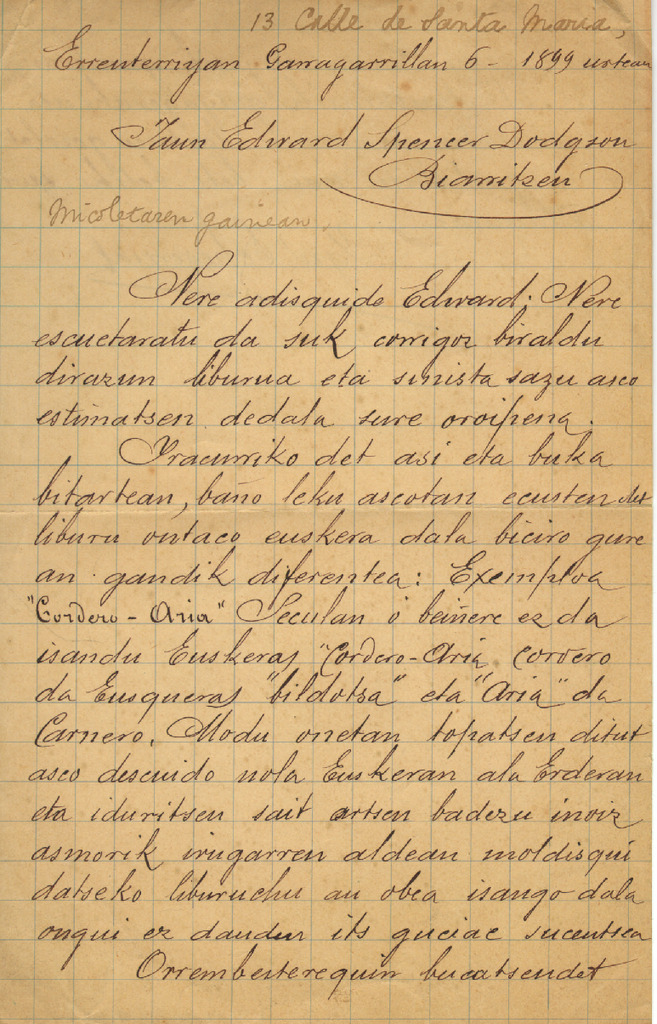 13 Calle de Santa Maria,
Errenterriyan Garragarrillan 6 - 1899 urtean
Jaun Edward Spencer Dodgson
Biarritzen
Micoletaren gainean.
Nere adisquide Edward: Nere
escuetaratu da suk corrigoz biraldu
dirazun liburua eta sinista sazu asco
estimatsen dedala sure oroipena.
Iracurriko det asi eta buka
bitartean, baño leku ascotan ecusten det
liburu ontaco euskera dala biciro gure
an gandik diferentea: Exemploa
"Cordero - Aria" Seculan o beiñere ez da
isandu Euskeraz "Cordero-Aria cordero
da Eusqueraz "bildotsa" eta "Aria" da
Carnero. Modu onetan topatsen ditut
asco descuido nola Euskeran ala Erderan
eta iduritsen sait artsen badezu inoiz
asmorik irugarren aldean moldisqui
datseko liburuchu au obea isango dala
ongui ez dauden its guciac sucentsea
Orrembesterequin bucatsendet